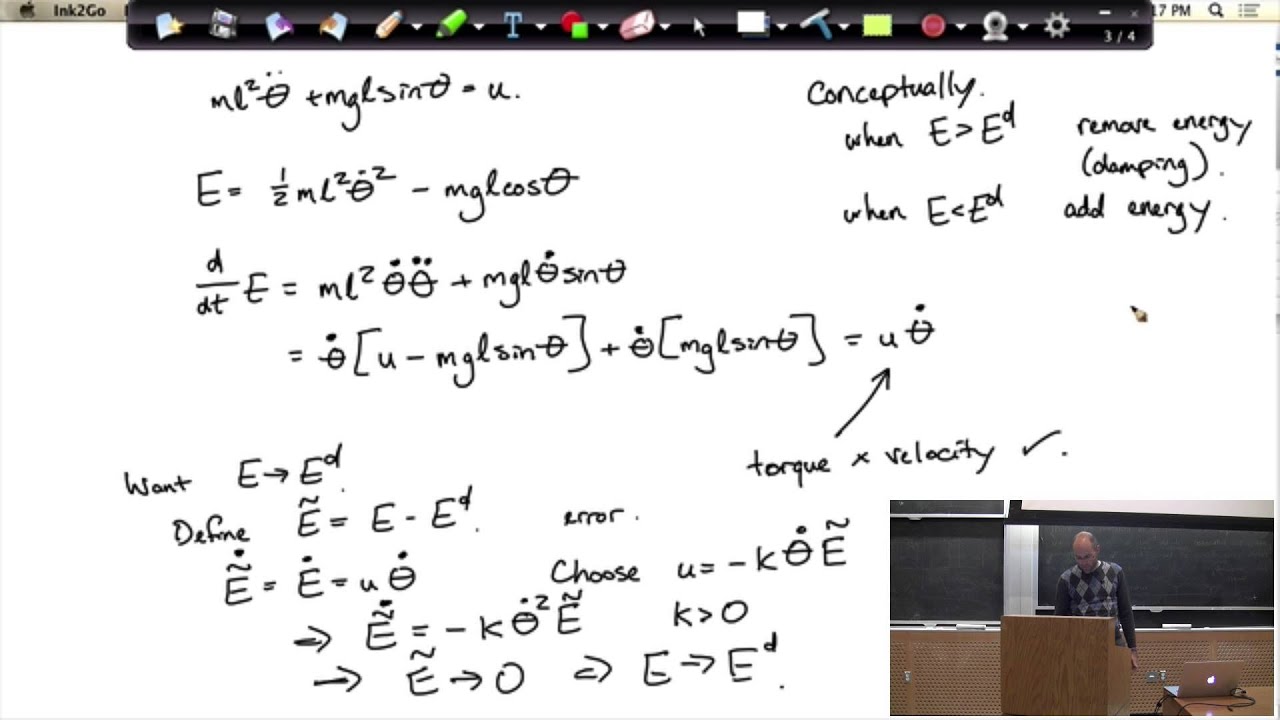 Ink2Go
17 PM
3 / 4
ml²θ̈ + mgl sinθ = u.
E = ½ml²θ̇² - mgl cosθ
d/dt E = ml² θ̇θ̈ + mglθ̇ sinθ
= θ̇[u - mgl sinθ] + θ̇[mgl sinθ] = u θ̇
torque × velocity ✓.
Conceptually.
when E > Eᵈ remove energy
(damping).
when E < Eᵈ add energy.
Want E → Eᵈ.
Define Ẽ = E - Eᵈ. error.
Ẽ̇ = Ė = u θ̇ Choose u = - k θ̇ Ẽ
⇒ Ẽ̇ = - k θ̇² Ẽ k > 0
→ Ẽ → 0 ⇒ E → Eᵈ.